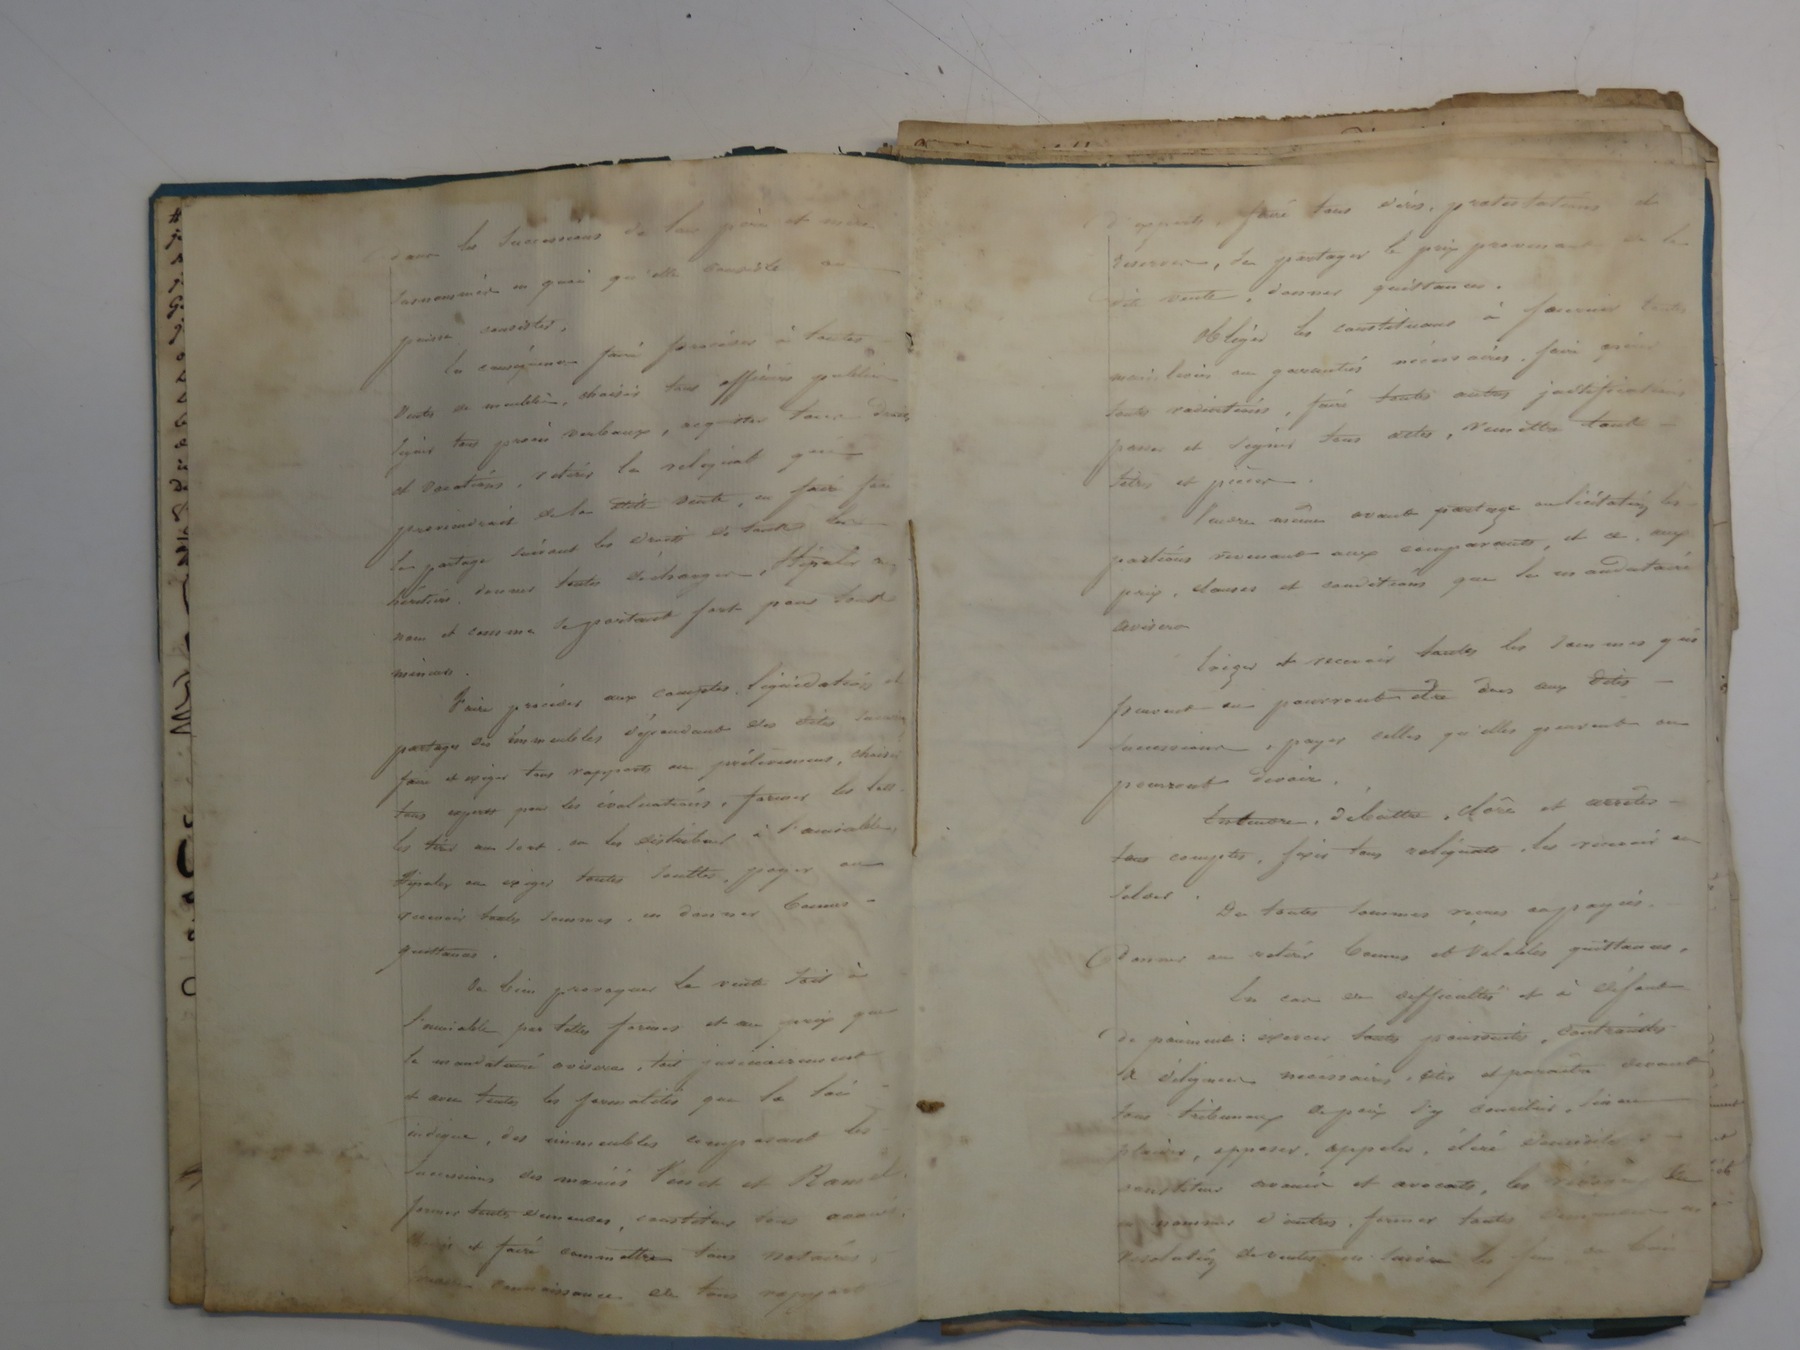 dans les successions de leur père et mère
susnommés en quoi qu'elle consiste ou
puisse consister.
En conséquence faire procéder à toutes
ventes de meubles, choisir tous officiers publics
signer tous procès verbaux, acquitter tous droits
et vacations, retirer le reliquat que
proviendrait de la dite vente, en faire faire
le partage suivant les droits de toutes les
héritiers, donner toutes décharges, stipuler au
nom et comme se portant fort pour tout
mineurs.
Faire procéder aux comptes, liquidation et
partages des immeubles dépendant des dites
faire et exiger tous rapports ou prélèvements, choisir
tous experts pour les évaluations, former les lots
les tirer au sort ou les distribuer à l'amiable
stipuler ou exiger toutes soultes, payer ou
recevoir toutes sommes, en donner bonnes
quittances.
Ou bien provoquer la vente soit à
l'amiable, par telles formes et au prix que
le mandataire avisera, soit judiciairement
et avec toutes les formalités que la loi
indique, des immeubles composant les
successions des mariés et
former toutes demandes, constituer tous avoués,
choisir et faire commettre tous notaires,
prendre connaissance de tous rapport
d'experts, faire tous dires, protestations et
réserves, se partager le prix provenant de la
dite vente, donner quittances.
Obliger les constituans à fournir toutes
mainlevées ou garanties nécessaires, faire opérer
toutes radiations, faire toutes autres justifications
passer et signer tous actes, remettre tout
titres et pièces.
Vendre même avant partage ou licitation les
portions revenant aux comparants, et ce, aux
prix, clauses et conditions que le mandataire
avisera
Exiger et recevoir toutes les sommes qui
peuvent ou pourront être dues aux dites
successions, payer celles qu'elles peuvent ou
pourront devoir.
Entendre, débattre, clore et arrêter
tous comptes, fixer tous reliquats, les recevoir ou
solder.
De toutes sommes reçues ou payées.
Donner ou retirer bonnes et valables quittances.
En cas de difficultés et à défaut
de paiement: exercer toutes poursuites, contraintes
& diligences nécessaires, citer et paraître devant
tous tribunaux de paix s'y concilier, sinon
plaider, opposer, appeler, élire domicile
constituer avoués et avocats, les révoquer
nommer d'autres, former toutes demandes en
résolution de ventes, en suivre les fins ou bien